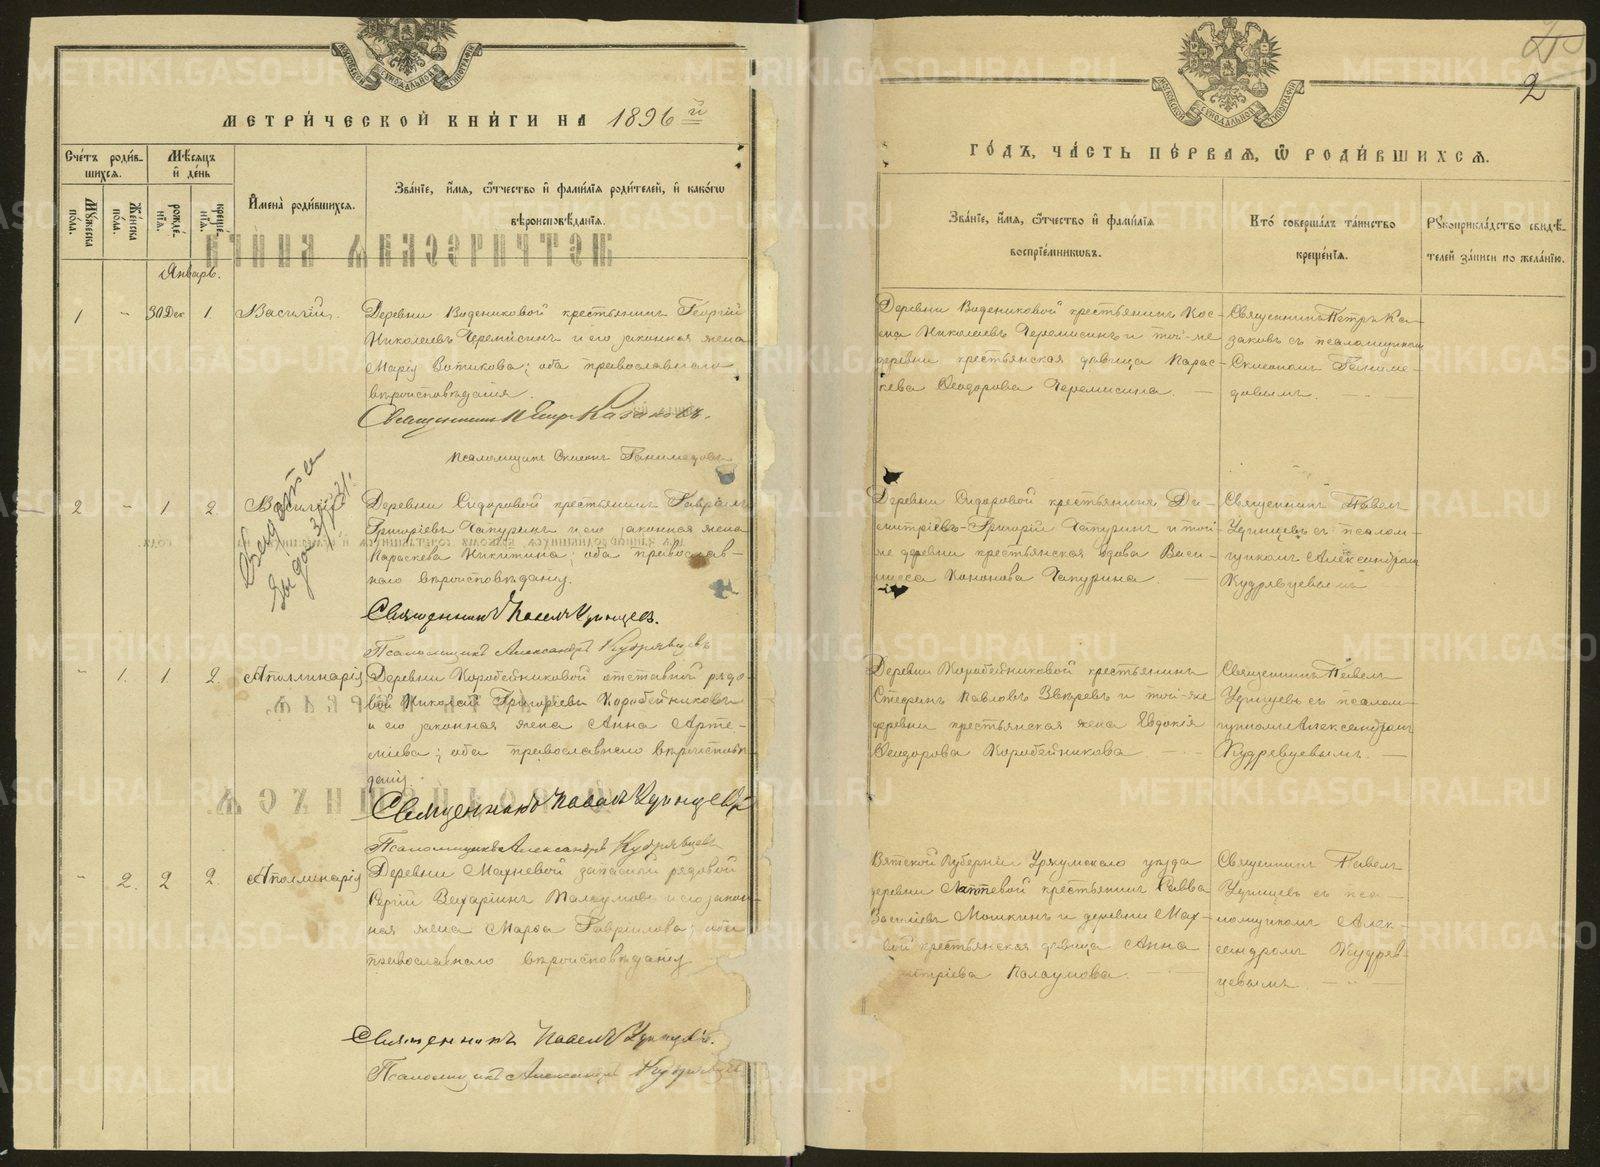 МЕТРИ́ЧЕСКОЙ КНИ́ГИ НА 1896 й
Сче́тъ роди́в-
шихся.
Мѣсяцъ
и҆ де́нь
Мꙋ́жеска
по́ла.
Же́нска
по́ла.
рожде́-
нїѧ.
креще́-
нїѧ.
И҆мена̀ роди́вшихся.
Зва́нїе, и҆́мѧ, ѻ҆́тчество и҆ фами́лїѧ роди́телей, и҆ како́гѡ
вѣроисповѣ́данїѧ.
Январь.
1 " 30 Дек 1. Василій.
Деревни Водениковой крестьянинъ Георгій
Николаевъ Черемисинъ и его законная жена
Марія Вотикова; оба православнаго
вѣроисповѣданія.
Священникъ Петръ Казаковъ.
Псаломщикъ Симеонъ Ганимедовъ
2 " 1 2. Василій
Выдано
Деревни Сидоровой крестьянинъ Гавріилъ
Григоріевъ Чапуринъ и его законная жена
Параскева Никитина; оба православ-
наго вѣроисповѣданія.
Священникъ Павелъ Удинцевъ.
Псаломщикъ Александръ Кудрявцевъ
" 1. 1 2. Аполлинарія
Деревни Коробейниковой отставной рядо-
вой Николай Григоріевъ Коробейниковъ
и его законная жена Анна Арте-
міева; оба православнаго вѣроисповѣ-
данія.
Священникъ Павелъ Удинцевъ
Псаломщикъ Александръ Кудрявцевъ
" 2. 2 2. Аполлинарія
Деревни Махневой запасный рядовой
Сергій Палаумовъ и его закон-
ная жена Марѳа Гавріилова; оба
православнаго вѣроисповѣданія
Священникъ Павелъ Удинцевъ.
Псаломщикъ Александръ Кудрявцевъ
2
ГО́ДЪ, ЧА́СТЬ ПЕ́РВАѦ, Ѽ РОДИ́ВШИХСѦ.
Зва́нїе, и҆́мѧ, ѻ҆́тчество и҆ фами́лїѧ
воспрїе́мникѡвъ.
Кто̀ соверша́лъ та́инство
креще́нїѧ.
Рꙋкоприкла́дство свидѣ́-
телей за́писи по жела́нїю.
Деревни Водениковой крестьянинъ Кос-
ма Николаевъ Черемисинъ и той-же
деревни крестьянская дѣвица Парас-
кева Ѳеодорова Черемисина.
Священникъ Петръ Ка-
заковъ съ псаломщикомъ
Симеономъ Ганиме-
довымъ.
Деревни Сидоровой крестьянинъ Ди-
митріевъ-Григорій Чапуринъ и той-
же деревни крестьянская вдова Васи-
лисса Кононова Чапурина.
Священникъ Павелъ
Удинцевъ съ псалом-
щикомъ Александромъ
Кудрявцевымъ
Деревни Коробейниковой крестьянинъ
Стефанъ Павловъ Звѣревъ и той-же
деревни крестьянская жена Евдокія
Ѳеодорова Коробейникова
Священникъ Павелъ
Удинцевъ съ псалом-
щикомъ Александромъ
Кудрявцевымъ
Вятской Губерніи Уржумскаго уѣзда
деревни Лаптевой крестьянинъ Савва
Васильевъ Мошкинъ и деревни Мах-
вой крестьянская дѣвица Анна
митріева Палаумова.
Священникъ Павелъ
Удинцевъ съ пса-
ломщикомъ Алек-
сандромъ Кудряв-
цевымъ.
METRIKI.GASO-URAL.RU